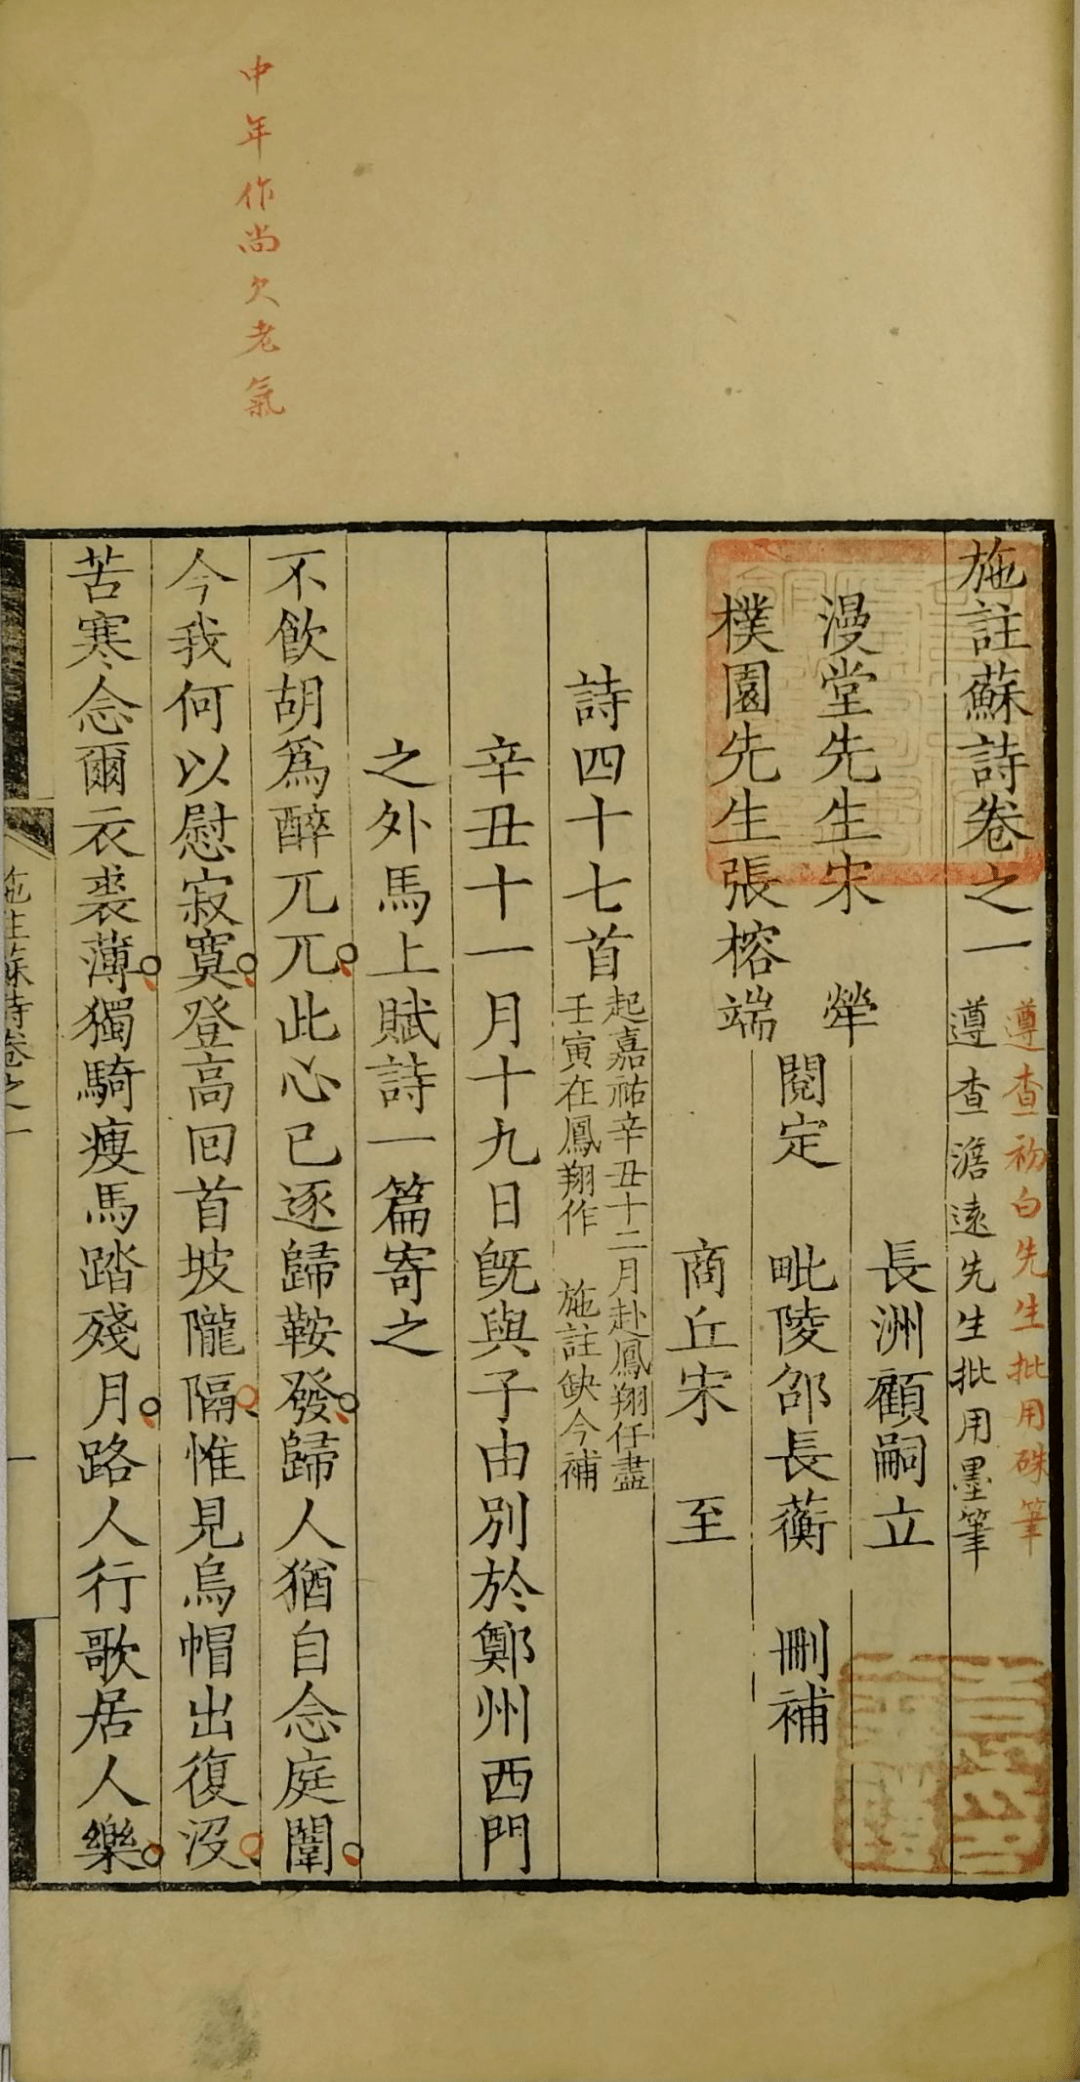 中年作尚欠老氣
遵查初白先生批用硃筆
施註蘇詩卷之一
遵查澹遠先生批用墨筆
漫堂先生宋犖
樸園先生張榕端
閱定
長洲顧嗣立
毗陵邵長蘅
刪補
商丘宋至
詩四十七首
起嘉祐辛丑十二月赴鳳翔任盡
壬寅在鳳翔作 施註缺今補
辛丑十一月十九日旣與子由別於鄭州西門
之外馬上賦詩一篇寄之
不飲胡爲醉兀兀此心已逐歸鞍發歸人猶自念庭闈
今我何以慰寂寞登高回首坡隴隔惟見烏帽出復沒
苦寒念爾衣裘薄獨騎瘦馬踏殘月路人行歌居人樂
施註蘇詩卷之一
一